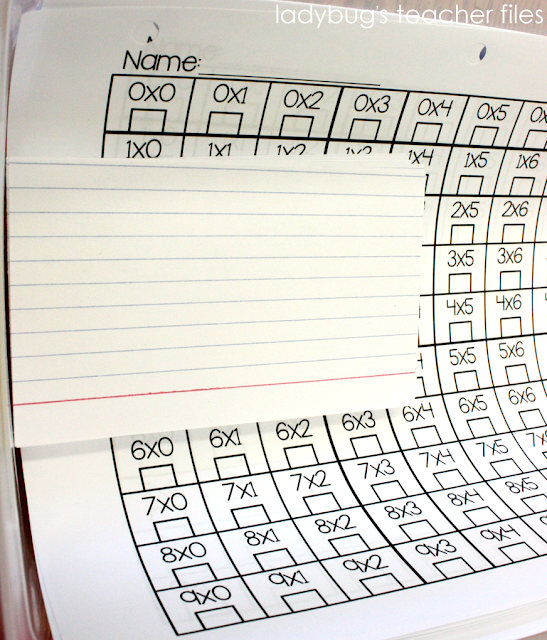 ladybug's teacher files
Name:
0x0 0x1 0x2 0x3 0x4 0x5
1x0 1x1 1x2 1x3 1x4 1x5 1x6
2x5 2x6
3x5 3x6
4x5 4x6
5x5 5x6
6x0 6x1 6x2 6x3 6x4 6x5 6x6
7x0 7x1 7x2 7x3 7x4 7x5
8x0 8x1 8x2 8x3 8x4 8x5
9x0 9x1 9x2 9x3 9x4